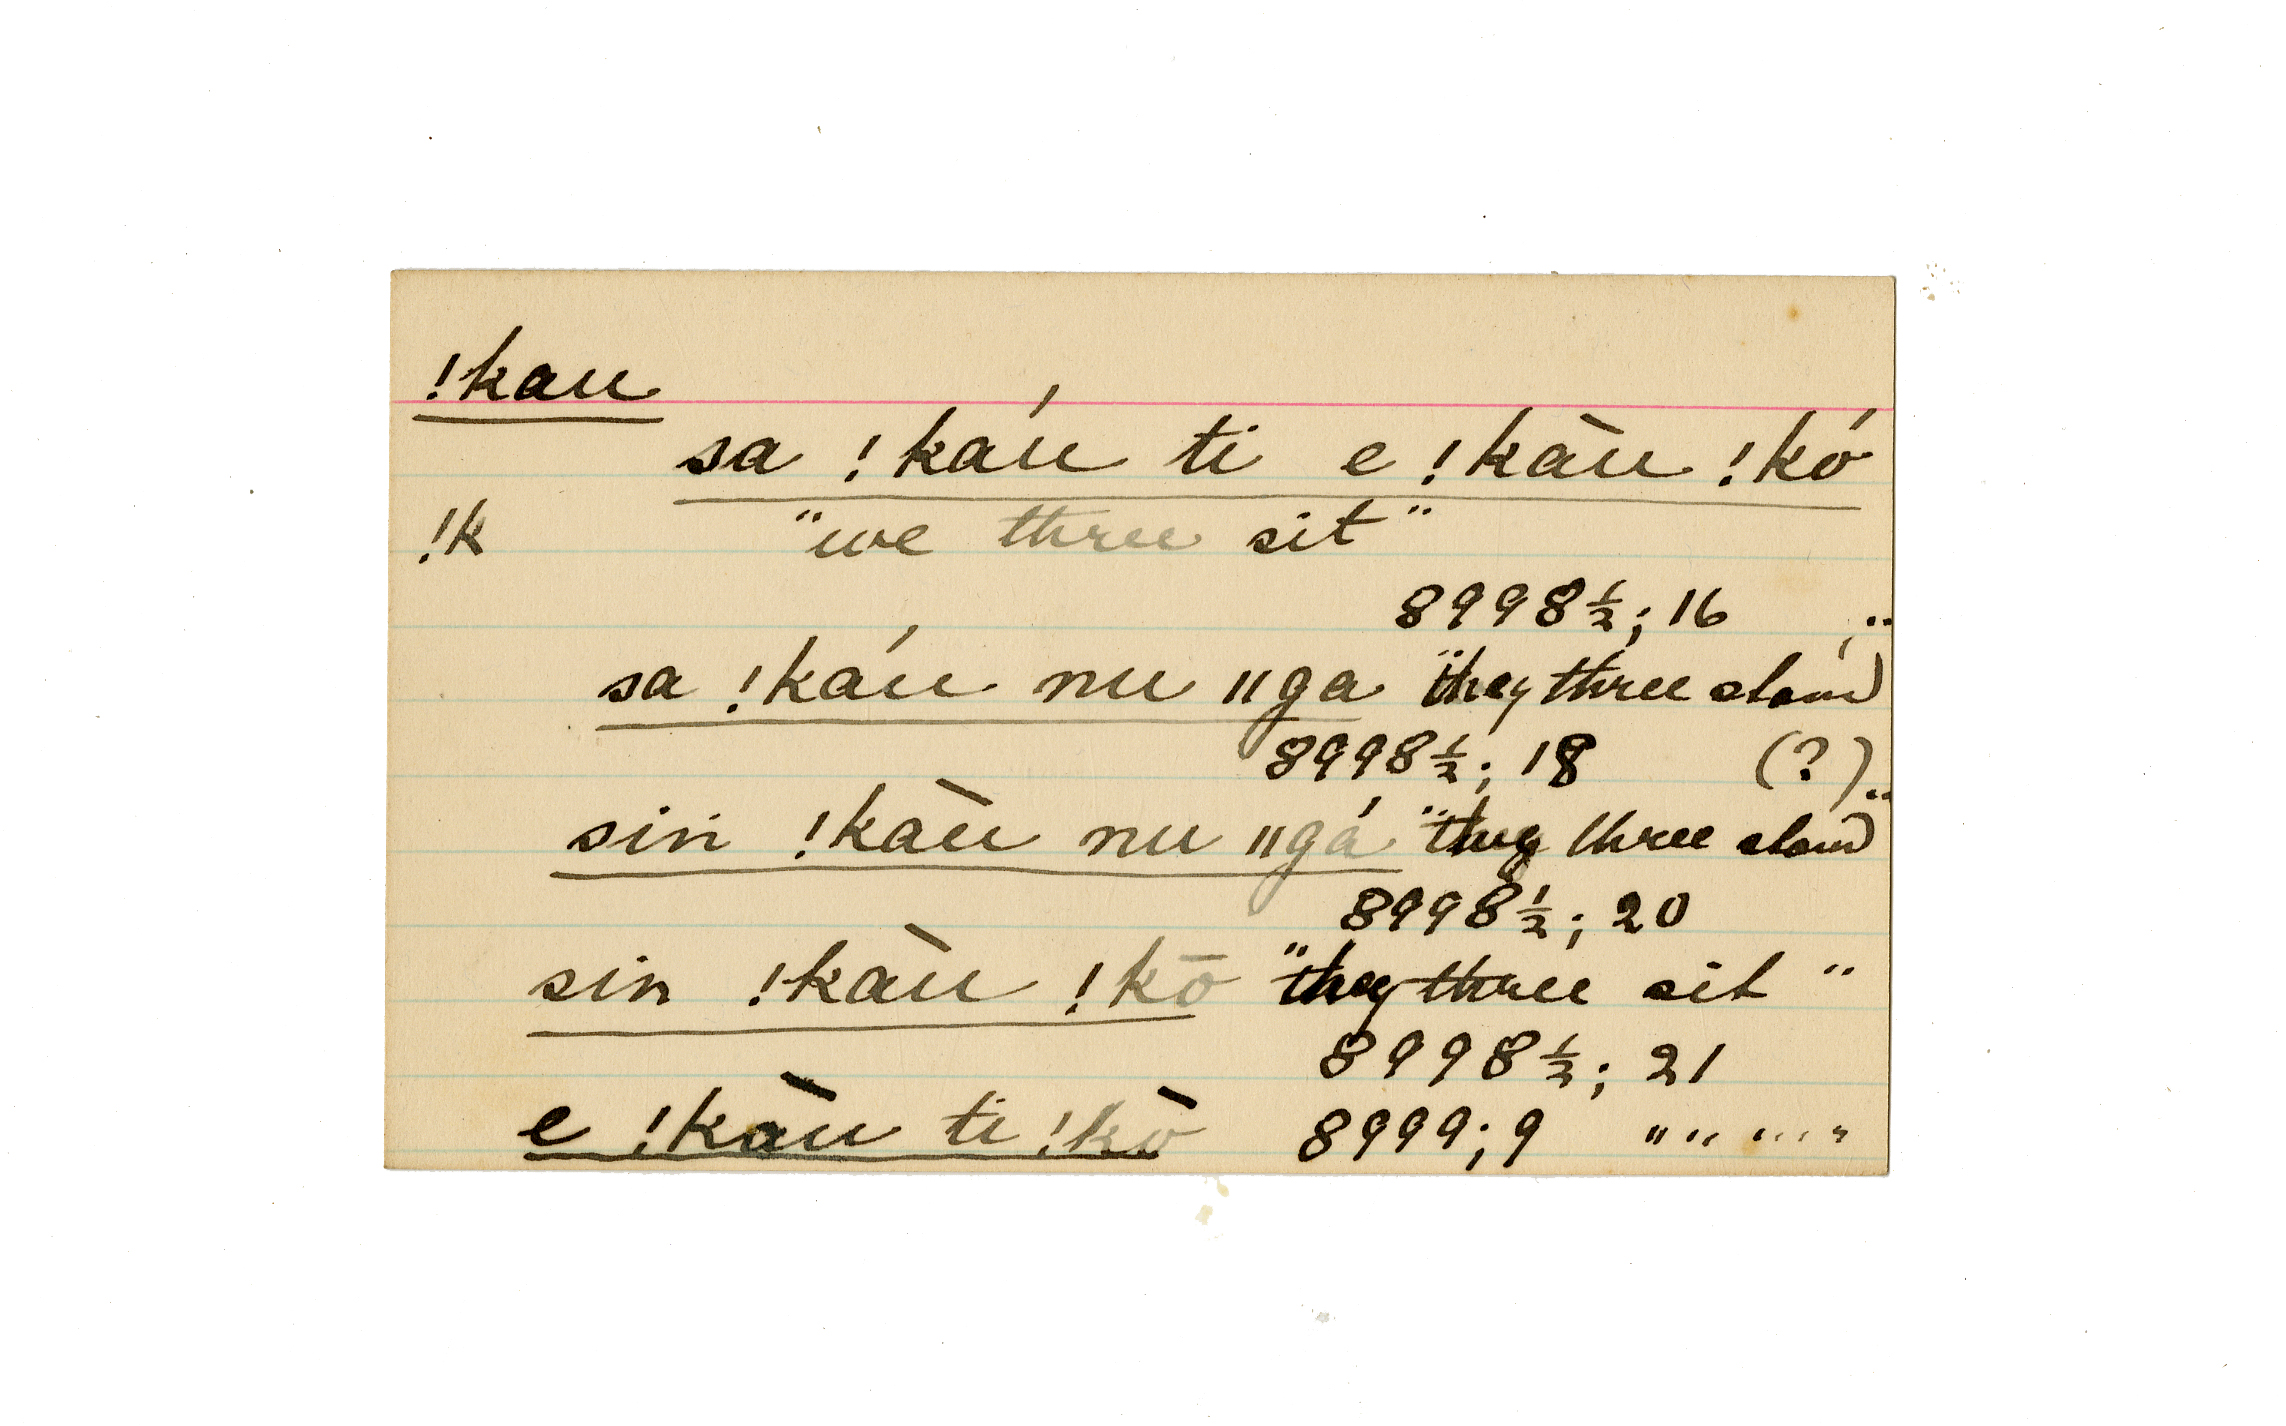 !kau
sa !káu ti e !kàu !kó
!k "we three sit"
8998½; 16
sa !káu nu ǁga "they three stand"
8998½; 18 (?)
sin !kàu nu ǁgá "they three stand"
8998½; 20
sin !kàu !kō "they three sit"
8998½; 21
e !kàu ti !kò 8999; 9 " " " "